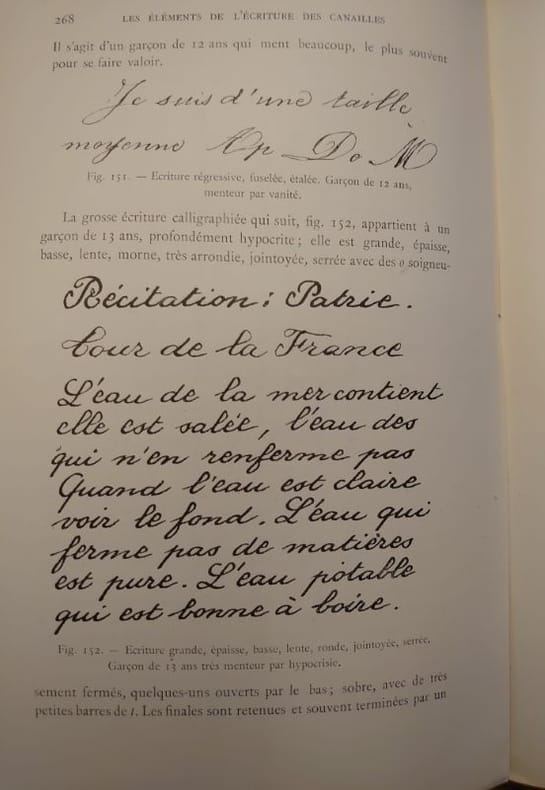 268 LES ÉLÉMENTS DE L'ÉCRITURE DES CANAILLES
Il s'agit d'un garçon de 12 ans qui ment beaucoup, le plus souvent
pour se faire valoir.
Je suis d'une taille
moyenne Ap Do M
Fig. 151. — Ecriture régressive, fuselée, étalée. Garçon de 12 ans,
menteur par vanité.
La grosse écriture calligraphiée qui suit, fig. 152, appartient à un
garçon de 13 ans, profondément hypocrite ; elle est grande, épaisse,
basse, lente, morne, très arrondie, jointoyée, serrée avec des o soigneu-
Récitation : Patrie.
Cour de la France
L'eau de la mer contient
elle est salée, l'eau des
qui n'en renferme pas
Quand l'eau est claire
voir le fond. L'eau qui
ferme pas de matières
est pure. L'eau potable
qui est bonne à boire.
Fig. 152. — Ecriture grande, épaisse, basse, lente, ronde, jointoyée, serrée.
Garçon de 13 ans très menteur par hypocrisie.
sement fermés, quelques-uns ouverts par le bas ; sobre, avec de très
petites barres de t. Les finales sont retenues et souvent terminées par un